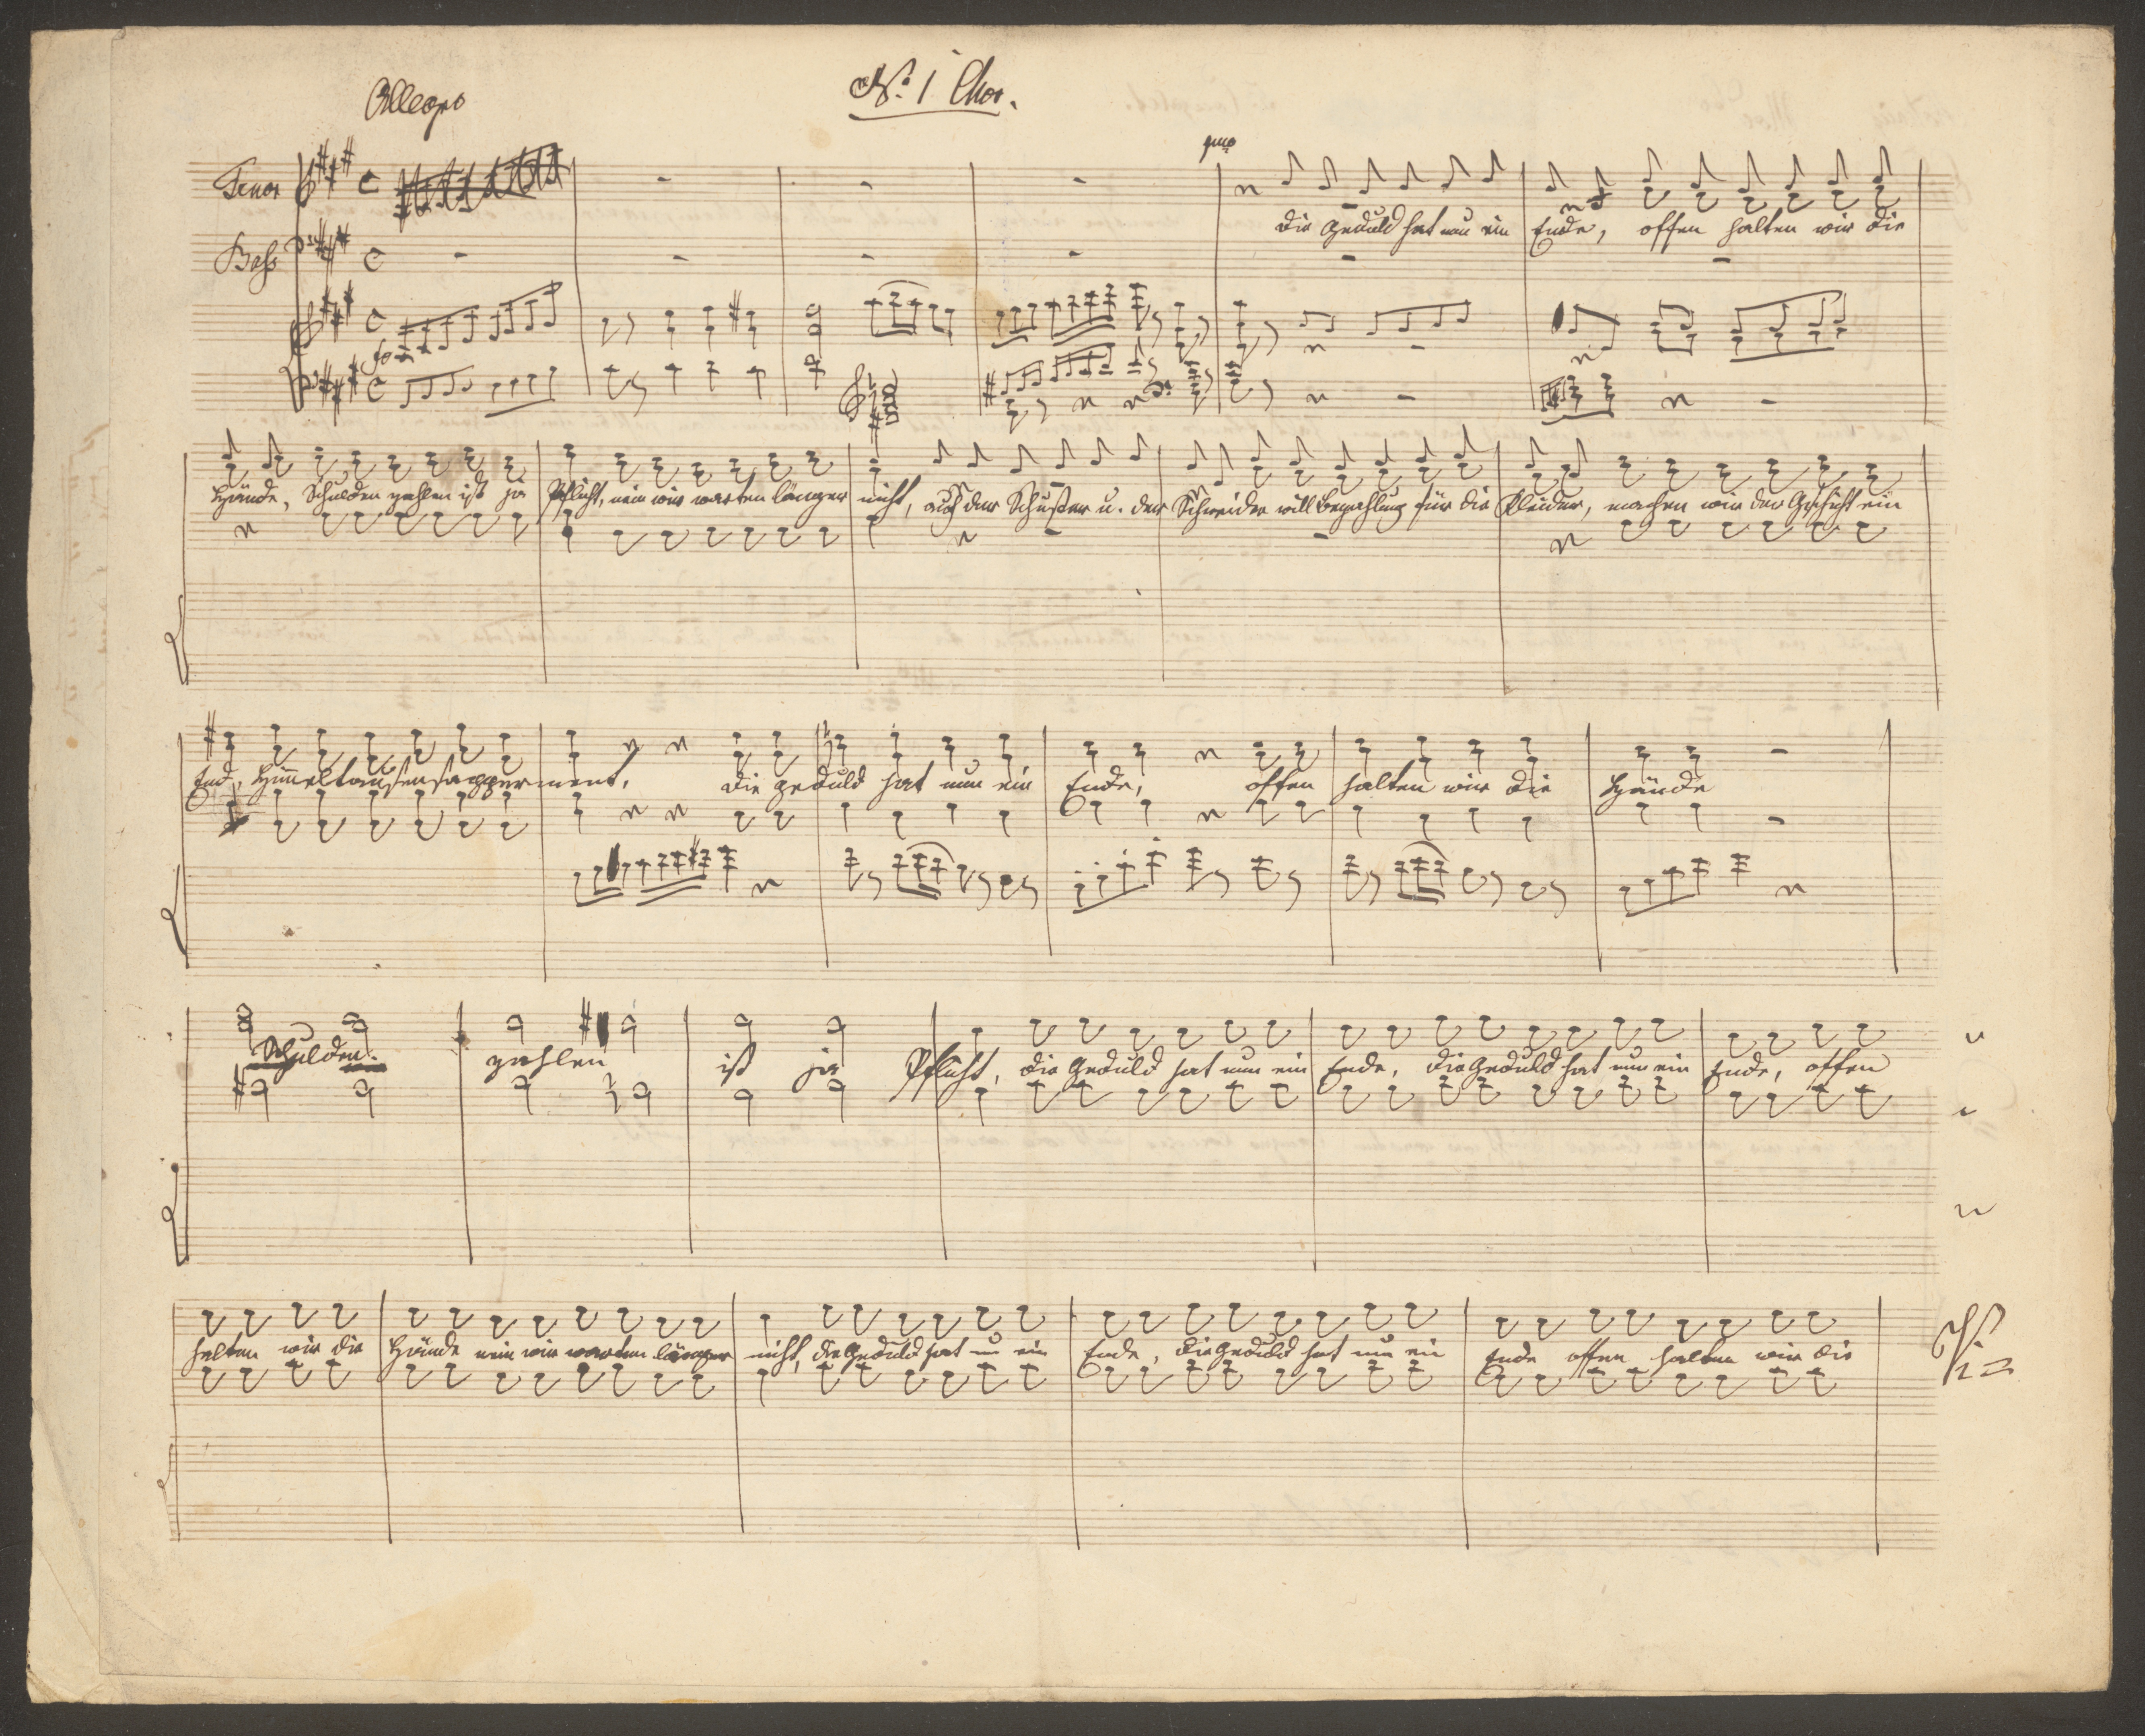 Allegro
No. 1 Chor.
Tenor
Bass
die Geduld hat nun ein Ende, offen halten wir die
Hände, Schulden zahlen ist ja Pflicht, nein wir warten länger nicht, auch der Schuster u. der Schneider will Bezahlung für die Kleider, machen wir der Geschicht ein
End, Himmeltausensapperment, die Geduld hat nun ein Ende, offen halten wir die Hände
Schulden zahlen ist ja Pflicht, die Geduld hat nun ein Ende, die Geduld hat nun ein Ende, offen
halten wir die Hände nein wir warten länger nicht, die Geduld hat nu ein Ende, die Geduld hat nun ein Ende offen halten wir die